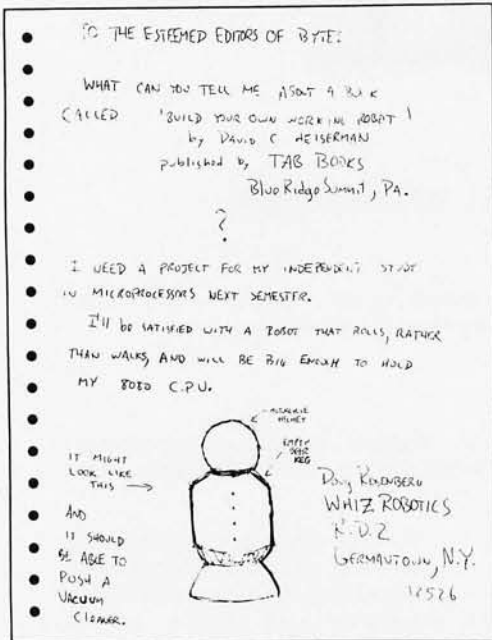 TO THE ESTEEMED EDITORS OF BYTE:
WHAT CAN YOU TELL ME ABOUT A BOOK
CALLED 'BUILD YOUR OWN WORKING ROBOT'
by DAVID C HEISERMAN
published by TAB BOOKS
Blue Ridge Summit, PA.
?
I NEED A PROJECT FOR MY INDEPENDENT STUDY
IN MICROPROCESSORS NEXT SEMESTER.
I'll be SATISFIED WITH A ROBOT THAT ROLLS, RATHER
THAN WALKS, AND WILL BE BIG ENOUGH TO HOLD
MY 8080 C.P.U.
HELMET
EMPTY
BEER
KEG
IT MIGHT
LOOK LIKE
THIS →
AND
IT SHOULD
BE ABLE TO
PUSH A
VACUUM
CLEANER.
Doug Rosenberg
WHIZ ROBOTICS
R.D.2
GERMANTOWN, N.Y.
12526